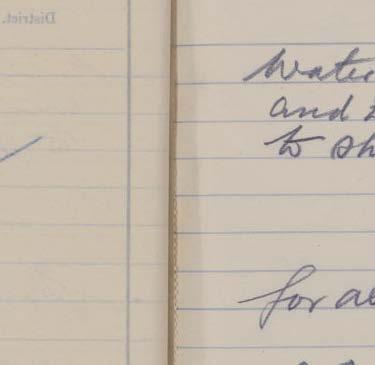 District.
Water
and
to sh
for al